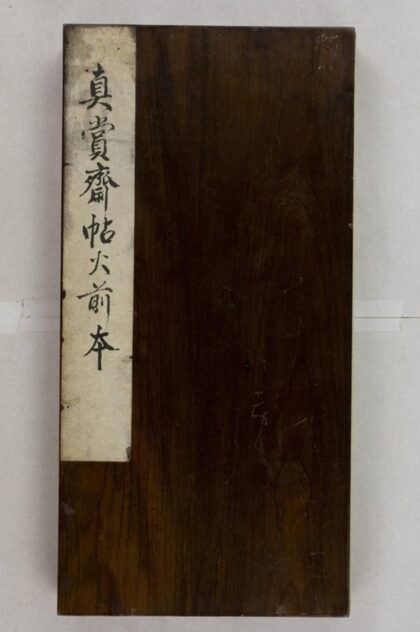 真賞齋帖火前本